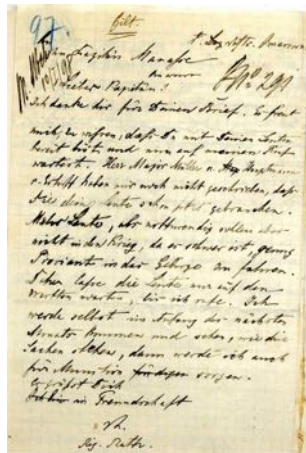 97.
An Kapitän Manasse
Lieber Kapitän!
Ich danke dir für Deinen Brief. Es freut
mich, zu erfahren, daß Du mit Deinen Leuten
bereit bist und nur auf meinen Ruf
wartest. Herr Major Müller u. Hauptmann
haben mir noch nicht geschrieben, daß
sie deine Leute schon jetzt gebrauchen.
Mehr Leute, als notwendig sollen aber
nicht in den Krieg, da es schwer ist, genug
Proviant in das Gebirge zu fahren.
lasse die Leute nur auf den
Werften warten, bis ich rufe. Ich
werde selbst im Anfang des nächsten
Monats kommen und sehen, wie die
Sachen stehen, dann werde ich auch
für Munition sorgen.
Es grüßt Dich
in Freundschaft